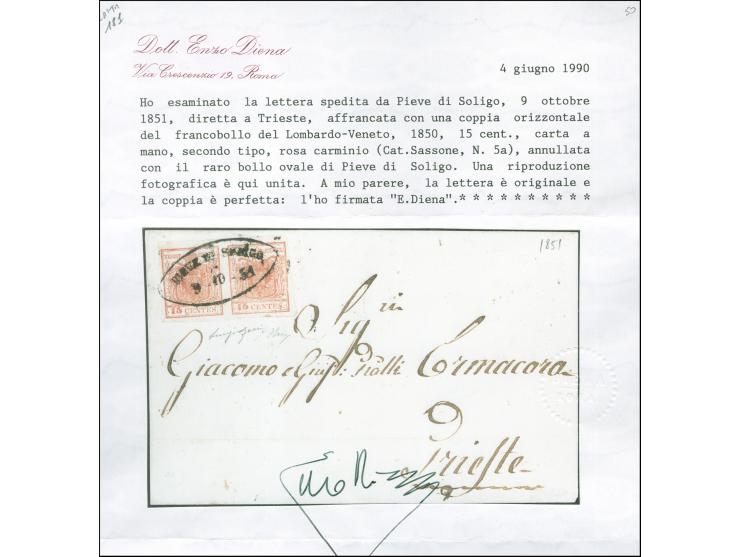 50
181
Dott. Enzo Diena
Via Crescenzio 19, Roma
4 giugno 1990
Ho esaminato la lettera spedita da Pieve di Soligo, 9 ottobre
1851, diretta a Trieste, affrancata con una coppia orizzontale
del francobollo del Lombardo-Veneto, 1850, 15 cent., carta a
mano, secondo tipo, rosa carminio (Cat.Sassone, N. 5a), annullata
con il raro bollo ovale di Pieve di Soligo. Una riproduzione
fotografica è qui unita. A mio parere, la lettera è originale e
la coppia è perfetta: l'ho firmata "E.Diena".* * * * * * * * * *
1851
PIEVE DI SOLIGO
9 · 10 · 51
15 CENTES. 15 CENTES.
Giacomo e Giusp: Fratelli Cormacora
Trieste
ROMA